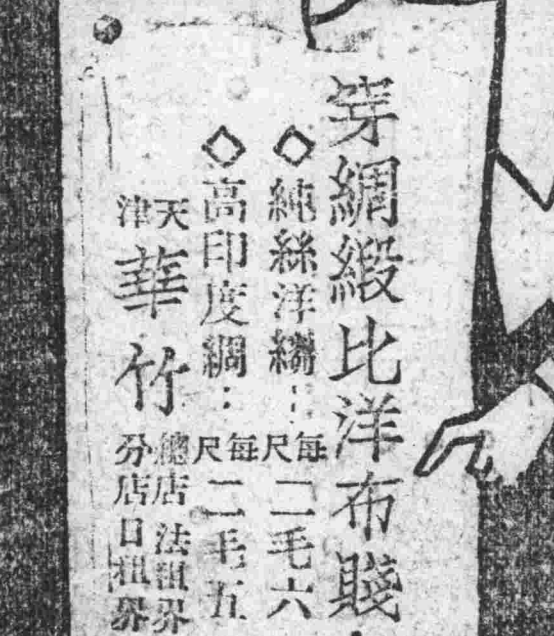 穿綢緞比洋布賤
◇純絲洋縐：每尺二毛六
◇高印度綢：每尺二毛五
天津華竹
總店法租界
分店日租界